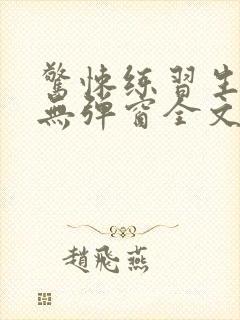 驚悚练習生
無弹窗全文
趙飛燕